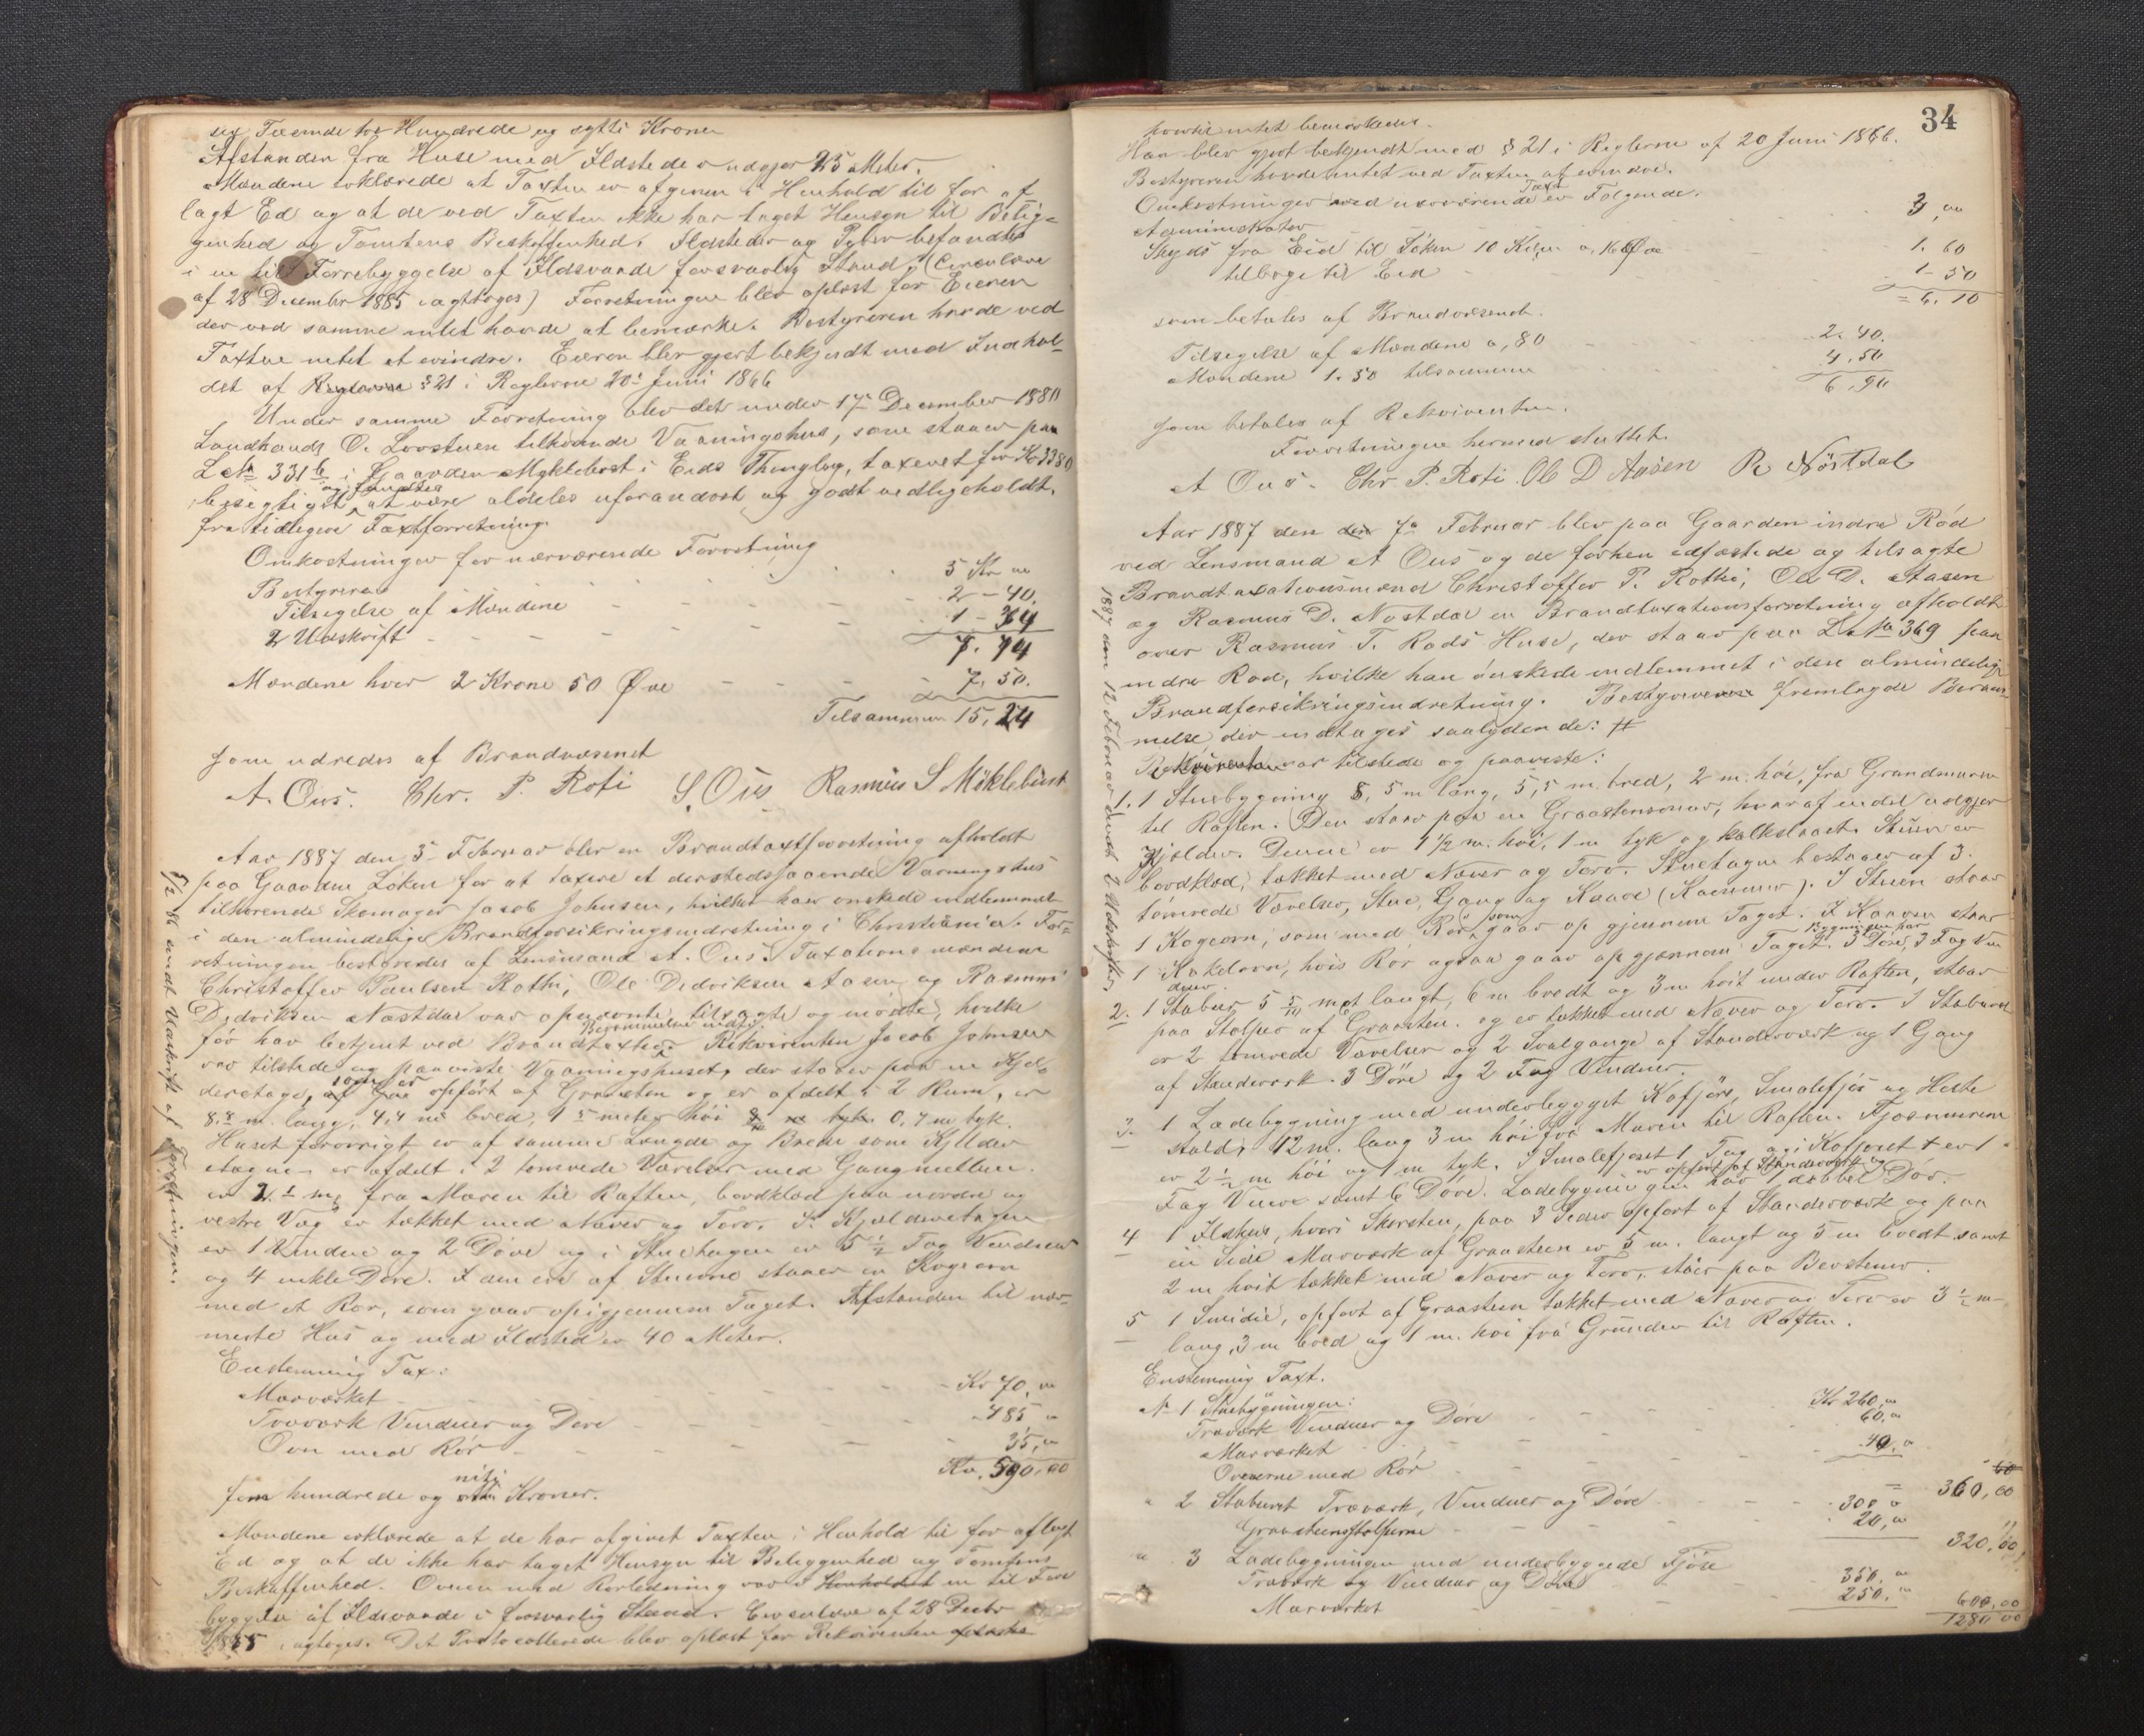 sex Tusende tre Hundrede og sytti Kroner
Afstanden fra Huse med Ildstede udgjør 25 Meter.
Mændene erklærede at Taxten er afgiven i Henhold til før af
lagt Ed og at de ved Taxten ikke har taget Hensyn til Belig-
genhed og Tomtens Beskaffenhed. Ildsteder og Piber befandtes
i en til Forrebyggelse af Ildsvaade forsvarlig Stand, (Circulære
af 28 December 1885 iagttoges) Forretningen blev oplæst for Eieren
der ved samme intet havde at bemærke. Bestyreren havde ved
Taxten intet at erindre. Eieren blev gjort bekjendt med Indhol-
det af § 21 i Reglerne 20de Juni 1866
Under samme Forretning blev det under 17 December 1880
Landhandl. O. Lovstuen tilhørende Vaaningshus, som staar paa
L No 331 b i Gaarden Myklebost i Eids Thinglag, taxeret for Kr 3380
besigtiget og fandtes at være aldeles uforandret og godt vedligeholdt
fra tidligere Taxtforretning.
Omkostninger for nærværende Forretning
Bestyreren - - - 3 Kr
Tilsigelse af Mændene - - - 2 - 40.
2 Udskrift - - - 1 - 34
7. 74
Mændene hver 2 Krone 50 Øre - - - 7. 50.
Tilsammen 15, 24
som udredes af Brandvæsenet
A. Ous. Chr. P. Roti S. Ous Rasmus S Möklebust
Aar 1887 den 5 Februar blev en Brandtaxtforretning afholdt
paa Gaarden Løken for at taxere et derstedsstaaende Vaaningshus
tilhørende Skomager Jacob Johnsen, hvilket han ønskede indlemmet
i den almindelige Brandforsikringsindretning i Christiania. For-
retningen bestyredes af Lensmand A. Ous. Taxationsmændene
Christoffer Paulsen Rothi, Ole Dedriksen Aasen og Rasmus
Dedriksen Nøstdal var opnævnte tilsagte og mødte, hvilke
før har betjent ved Brandtaxter. Rekvirenten Jacob Johnsen
var tilstede og paaviste Vaaningshuset, der staar paa en Kjæl-
deretage, som er opført af Graasten og er afdelt i 2 Rum, er
8.8 m. lang, 4,4 m bred, 1 5 meter høi 0,7 m tyk.
Huset forøvrigt er af samme Længde og Brede som Kjelder
etagen er afdelt i 2 tømrede Værelser med Gang mellem
er 2 1/2 m, fra Muren til Raften, bordklæd paa nordre og
vestre Væg er tækket med Næver og Torv. I Kjælderetagen
er 1 Vindue og 2 Døre og i Stuetagen er 5 1/2 Fag Vinduer
og 4 enkle Døre. I den ene af Stuerne staaer en Kogeovn
med et Rør, som gaar op igjennem Taget. Afstanden til nær-
meste Hus og med Ildsted er 40 Meter.
Enstemmig Tax:
Murværket - - - Kr 70,
Træværk Vinduer og Døre - - - 485
Ovn med Rør - - - 35,
Kr. 590,00
fem hundrede og niti Kroner.
Mændene erklærede at de har afgivet Taxten i Henhold til før aflagt
Ed og at de ikke har taget Hensyn til Beliggenhed og Tomtens
Beskaffenhed. Ovnen med Rørledning var i en til Fore
byggelse af Ildsvaade i forsvarlig Stand. Circulære af 28 Decbr
1885 iagttoges. Det Protocollerede blev oplæst for Rekvirenten
8/2 86 sendt Udskrift af Forretningen.
34
hvortil intet bemærkedes.
Han blev gjort bekjendt med § 21 i Reglerne af 20 Juni 1866.
Bestyreren havde intet ved Taxten at erindre.
Omkostninger ved nærværende Taxt er Følgende.
Administrator - - - 3,
Skyds fra Eid til Løken 10 Kilm a, 16 Øre - - - 1. 60
tilbage til Eid - - - 1 - 50
= 6. 10
som betales af Brandvæsenet.
Tilsigelse af Mændene a, 80 - - - 2. 40.
Mændene 1. 50 tilsammen - - - 4. 50
6. 90
som betales af Rekvirenten.
Forretningen hermed sluttet.
A Ous. Chr P. Roti Ole D Aasen R. Nöstdal
Aar 1887 den 7de Februar blev paa Gaarden indre Rød
ved Lensmand A Ous og de forhen edfæstede og tilsagte
Brandtaxationsmænd Christoffer P. Rothi, Ole D. Aasen
og Rasmus D. Nøstdal en Brandtaxationsforretning afholdt
over Rasmus T. Røds Huse, der staar paa L No 369 paa
indre Rød, hvilke han ønskede indlemmet i den almindelige
Brandforsikringsindretning. Bestyreren fremlagde Beram-
melse der indtages saalydende: #
Rekvirenten var tilstede og paaviste:
1. 1 Stuebygning 8, 5 m lang, 5,5 m. bred, 2 m. høi, fra Grundmuren
til Raften. Den staar paa en Graastensmur, hvoraf endel udgjør
Kjelder. Denne er 1 1/2 m. høi, 1 m tyk og kalkslaaet. Stuen er
bordklæd, tækket med Næver og Torv. Stuetagen bestaaer af 3
tømrede Værelser, Stue, Gang og Kaave (Kammer). I Stuen staar
1 Kogeovn, som med Rør som gaar op gjennem Taget. I Kaaven staar
1 Kakelovn, hvis Rør ogsaa gaar op gjennem Taget. Bygningen har 3 Døre, 3 Fag Vin
duer.
2. 1 Stabur 5 5/10 m langt, 6 m bredt og 3 m høit under Raften, staar
paa Stolper af Graasten. og er tækket med Næver og Torv. I Staburet
er 2 tømrede Værelser og 2 Svalgange af Standerværk og 1 Gang
af Standværk. 3 Døre og 2 Fag Vinduer.
3. 1 Ladebygning med underbygget Kofjøs, Smalefjøs og Heste
stald, 12 m. lang 3 m høi fra Muren til Raften. Fjøsmuren
er 2 1/2 m høi og 1 m tyk. I Smalefjøset 1 Fag og i Kofjøset er 1
Fag Vindue samt 6 Døre. Ladebygningen er opført af Standerværk og har 1 dobbel Dør.
4 1 Ildhus, hvori Skorsten, paa 3 Sider opført af Standerværk og paa
en Side Murværk af Graasteen er 5 m. langt og 5 m bredt samt
2 m høit tækket med Næver og Torv, staar paa Bergstener.
5 1 Smidie, opført af Graasteen tækket med Næver og Torv er 3 1/2 m
lang, 3 m bred og 1 m. høi fra Grunden til Raften.
Enstemmig Taxt.
No 1 Stuebygningen:
Træværk Vinduer og Døre - - - Kr 260,
Murværket - - - 60,
Ovnerne med Rør - - - 40,
360,00
" 2 Staburet Træværk, Vinduer og Døre - - - 300
Graasteensstolperne - - - 20,
320,00
" 3 Ladebygningen med underbyggede Fjøse
Træværk og Vinduer og Døre - - - 350.
Murværket - - - 250.
600,00
1280 00
1887 den 12 Februar sendt 2 Udskrifter,